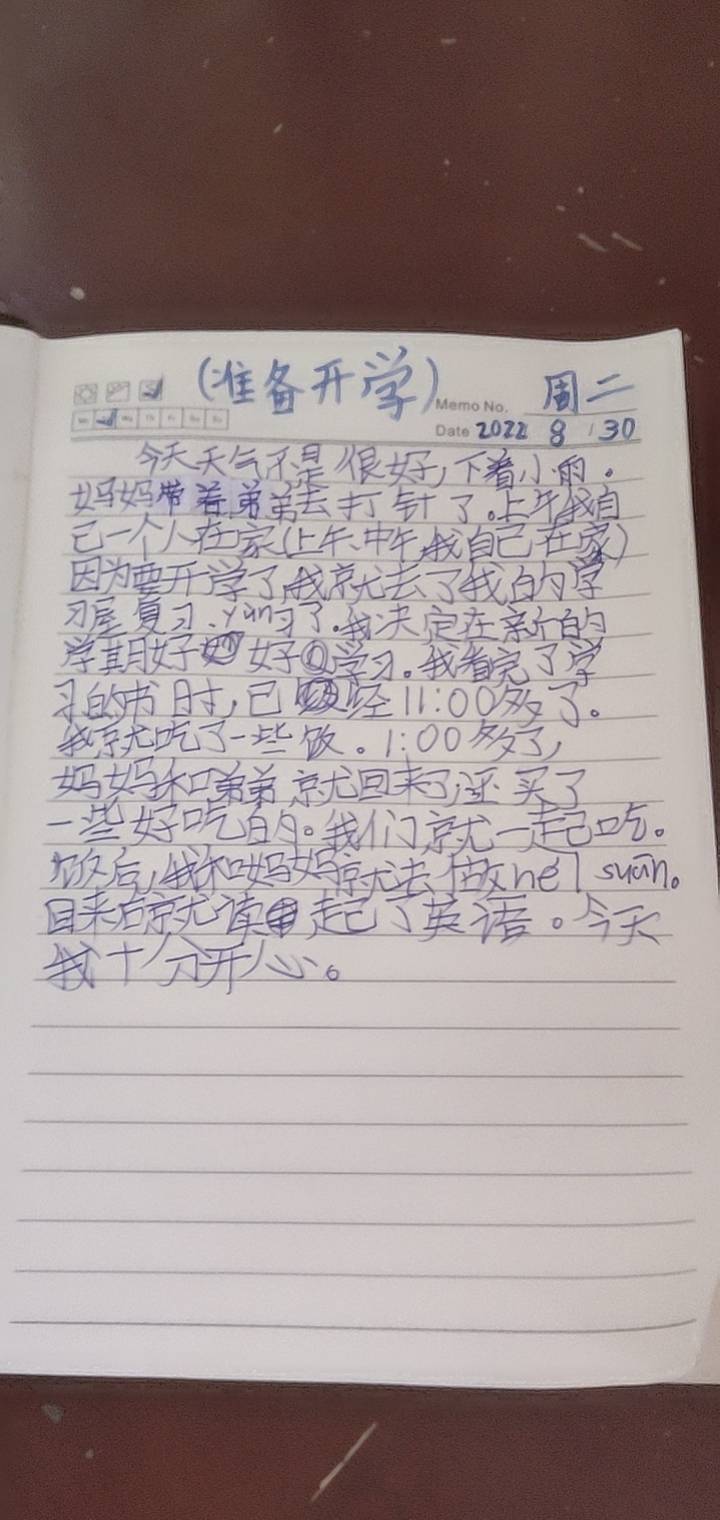 (准备开学)
Memo No.
周二
Date 2022 8 / 30
今天天气不是很好,下着小雨。
妈妈带着弟弟去打针了。上午我自
己一个人在家(上午、中午我自己在家)
因为要开学了,我就去了我的学
习屋复习、yùn习了。我决定在新的
学期好好学习。我看完了学
习的书时,已经11:00多了。
我就吃了一些饭。1:00多了,
妈妈和弟弟就回来了,还买了
一些好吃的。我们就一起吃。
饭后,我和妈妈就去做hé suān。
回来后就读起了英语。今天
我十分开心。